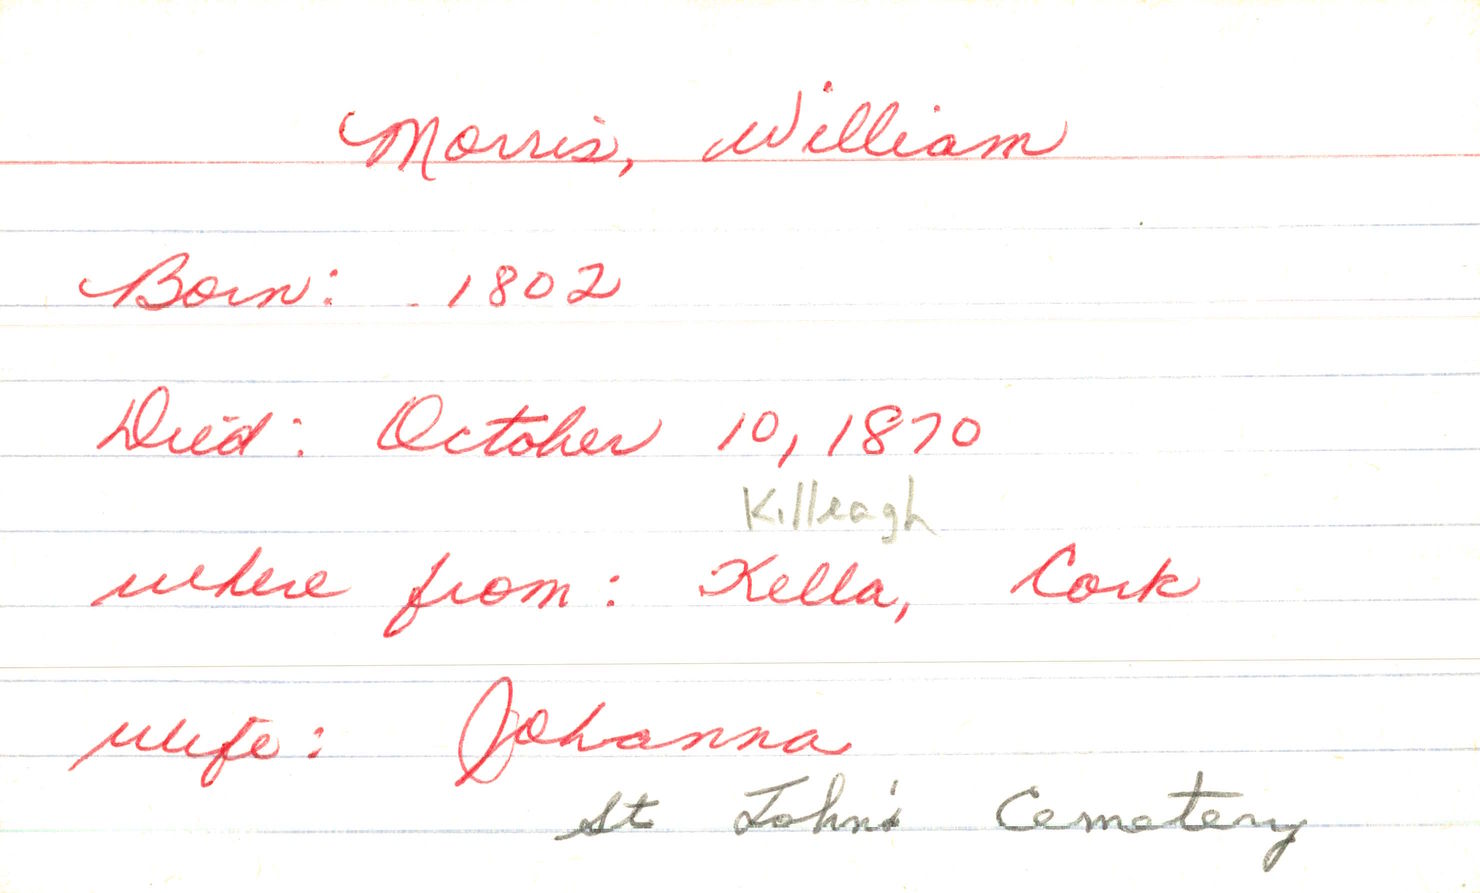 Morris, William
Born: 1802
Died: October 10, 1870
Killeagh
where from: Kella, Cork
wife: Johanna
St John's Cemetery